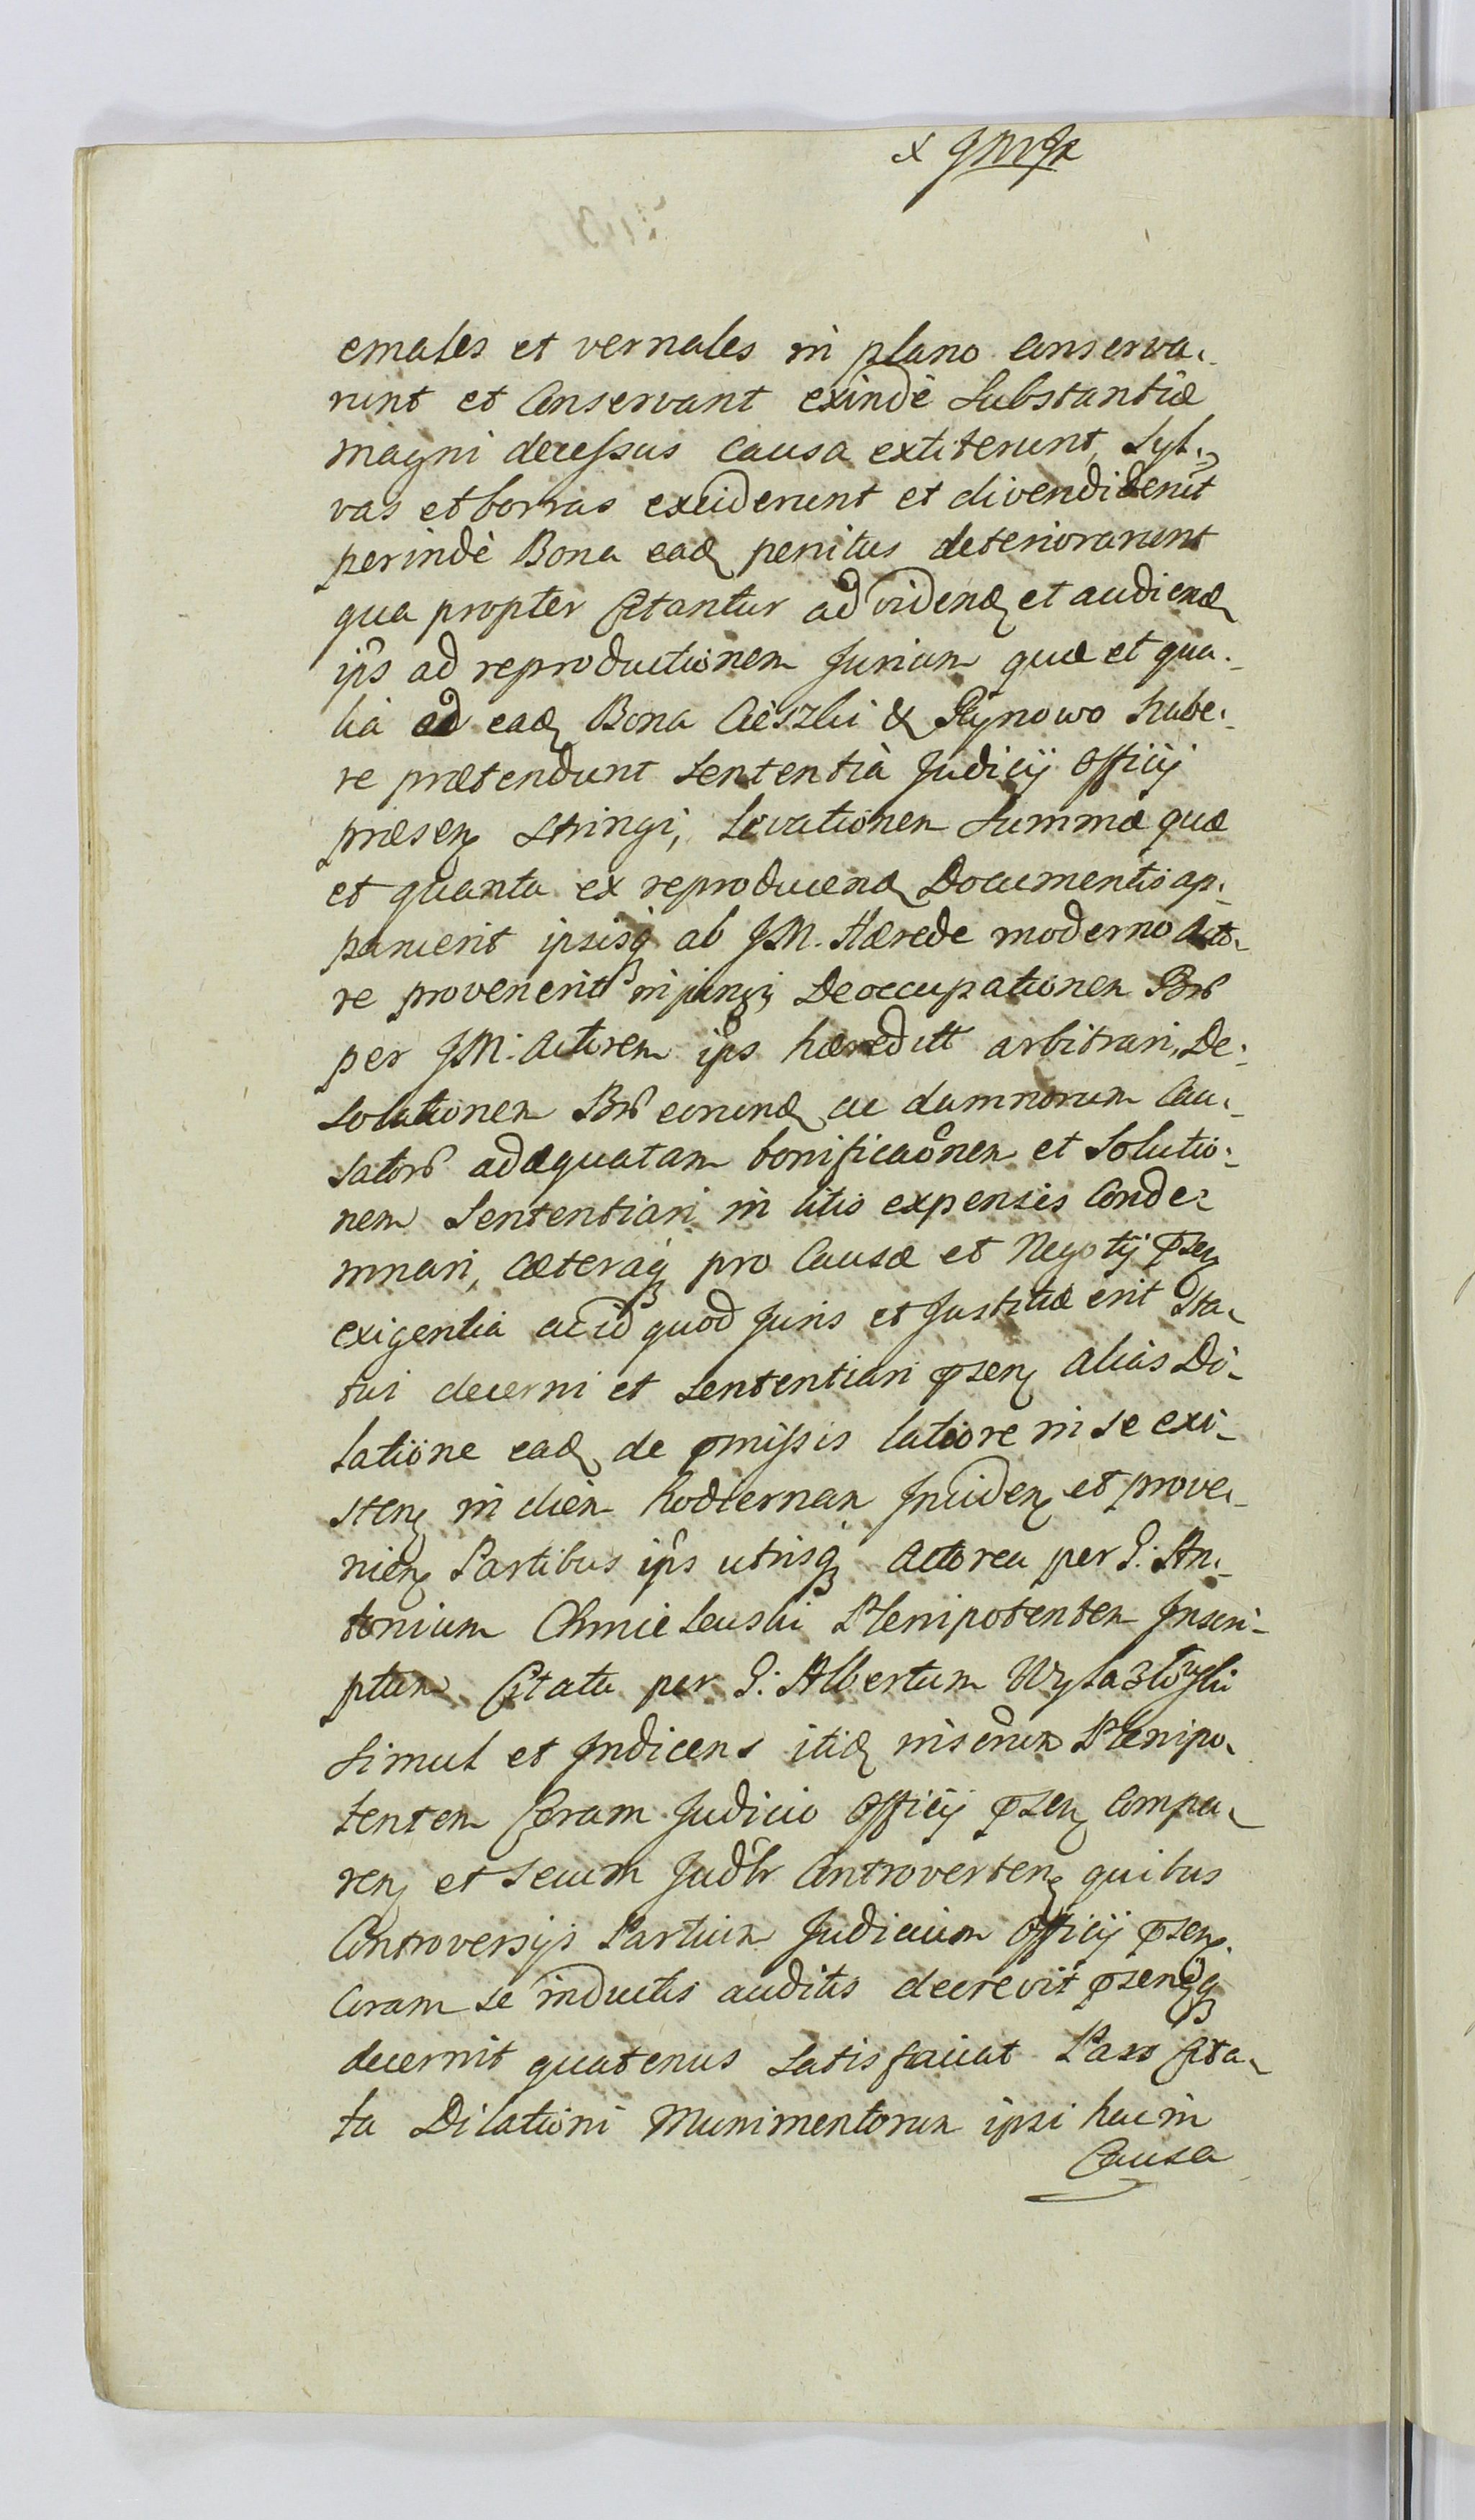 emales et vernales in plano conserva-
runt et Conservant exinde Substantiæ
magni decessus causa extiterunt, Syl-
vas et borras exciderunt et divendiderut
perinde Bona eaq penitus deteriorarunt
qua propter Citantur ad videnq et audienq
ips ad reproductionem Jurium quæ et qua-
lia ad eaq Bona Cieszki & Rynowo habe-
re prætendunt Sententia Judicij Officij
præsen stringi, Levationem Summæ quæ
et quanta ex reproducenq Documentis ap-
paruerit ipsisq ab JM. Hærede moderno Acto-
re provenerit injungi, Deoccupationem
per JM. Actorem ips hæreditt arbitrari, De-
solationem eorunq ac damnorum Cau-
sator adæquatam bonificaonem et Solutio-
nem Sententiari in litis expensis Conde-
mnari, Cæteraq pro Causæ et Negotij psen
exigentia ac id quod Juris et Justitiæ erit Sta-
tui decerni et Sententiari psen alias Di-
latione eaq de pmissis latiore in se exi-
sten in diem hodiernam Inciden et prove-
nien Partibus ips utrisq Actorea per G. An-
tonium Chmielewski Plenipotentem Inscri-
ptum Citata per G. Albertum
Simul et Indicens itiq Plenipo-
tentem Coram Judicio Officij psen Compa-
ren et Secum Judlr Controverten quibus
Controversijs Partium Judicium Officij psen
Coram se inductis auditis decrevit psentq
decernit quatenus Satisfaciat Pars Cita-
ta Dilationi Munimentorum ipsi hac in
Causa